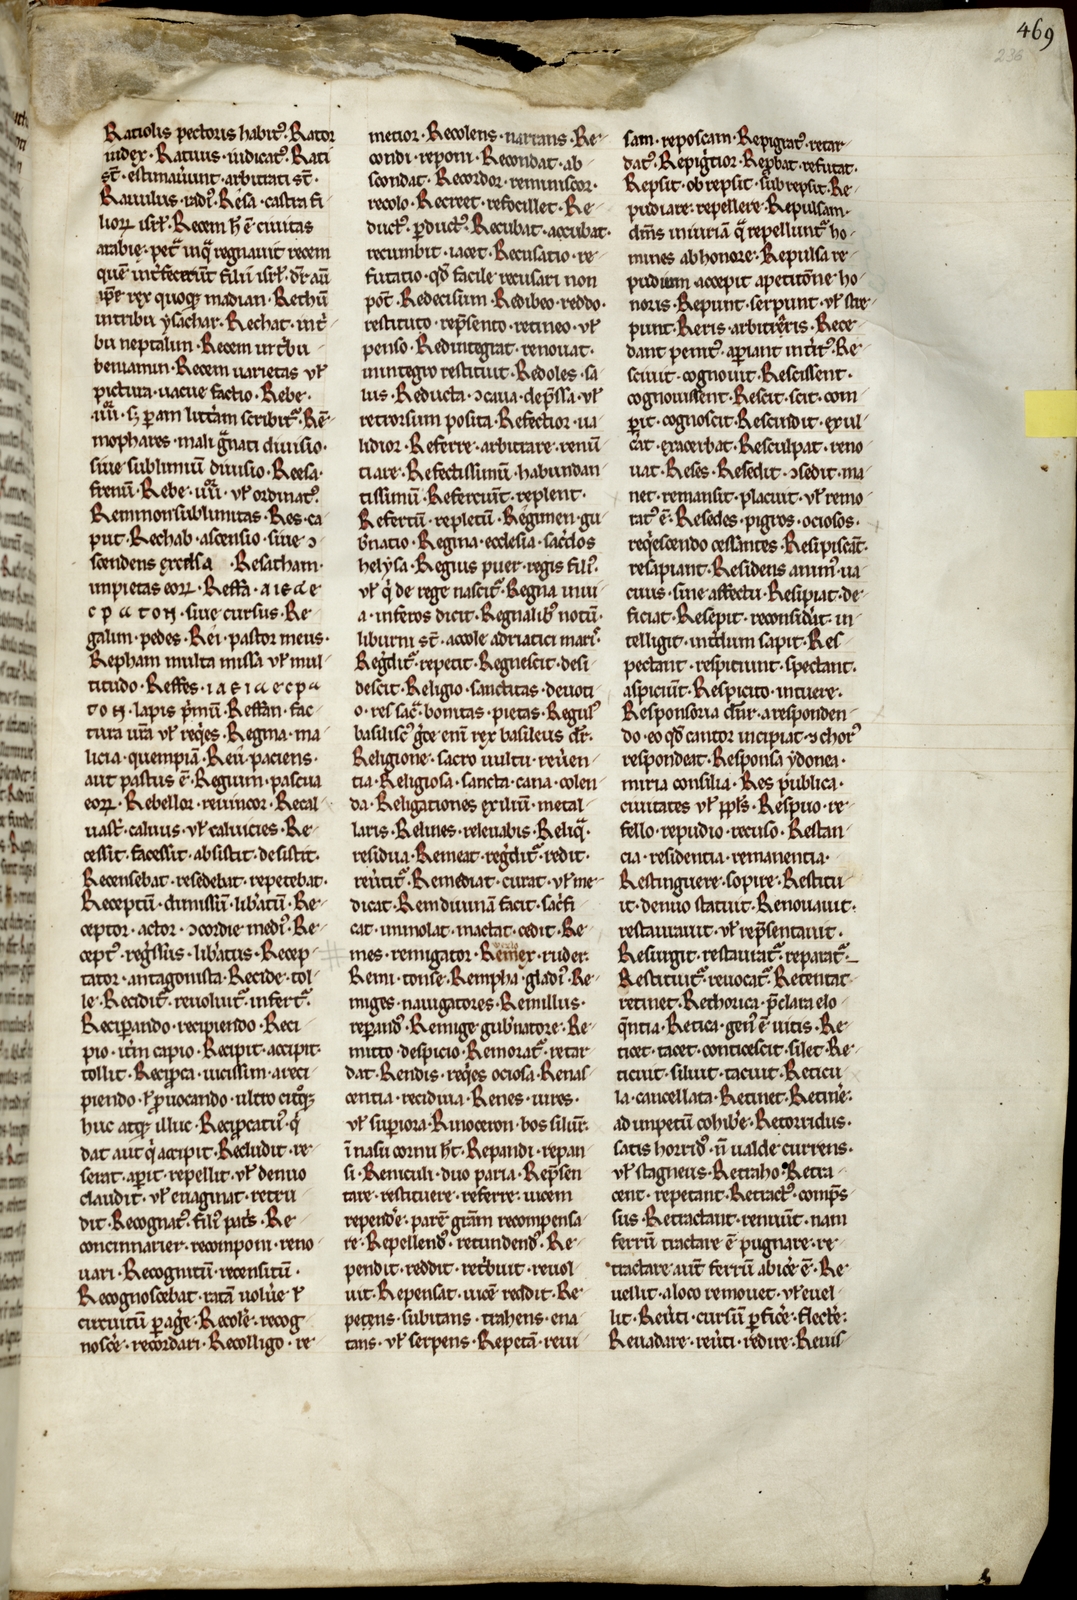 469
236
Ratiolis pectoris habitꝰ. Rator
iudex. Ratuus. iudicatꝰ. Rati
st̄. estimauerunt. arbitrati st̄.
Rauulus. radꝰ. Resa. castra fi
lioꝝ isrl̄. Recem h̄ ē ciuitas
arabie. petͣ inqͣ regnauit recem
quē int̄fecerunt filii isrl̄. dr̄ aū
ip̄e rex quoqꝫ madian. Rechū
intribu ẏsachar. Rechat. int̄
bu neptalim. Recem urt̄bu
beniamin. Recem uarietas ul̓
pictura. uacue factio. Rebe.
iiii. sꝫ ꝑ am litt̄am scribitᷣ. Rē
mophares. mali gͣnati diuisio.
siue sublimiū diuisio. Recsa.
frenū. Rebe. iiii. ul̓ ordinatꝰ.
Remmon sublimitas. Res. ca
put. Rechab. ascensio. siue ↄ
scendens excelsa. Resatham.
impietas eoꝝ. Reffa. a i s d e
c p a t o n. siue cursus. Re
galim. pedes. Rei. pastor meus.
Repham multa missa ul̓ mul
titudo. Reffes. i a s i a e c p a
t o n. lapis p̄mū. Reffan. fac
tura ur̄a ul̓ reqͥes. Regma. ma
licia. quempiā. Reū. paciens.
aut pastus ē. Regum. pascua
eoꝝ. Rebellor. reuincor. Recal
uast̄. caluus. ul̓ caluicies. Re
cessit. facessit. absistit. desistit.
Recensebat. resedebat. repetebat.
Receptū. dimissū. lib̄atū. Re
ceptor. actor. ↄcordie mediꝰ. Re
ceptꝰ. reg̓ssus. lib̄atus. Recep
tator. antagonista. Recide. tol
le. Reciditᷣ. reuoluitᷣ. infertᷣ.
Reciꝑando. recipiendo. Reci
pio. itm̄ capio. Recipit. accipit.
tollit. Reciꝓca. uicissim. a reci
piendo. ꝉ ꝓuocando. ultro citꝙꝫ.
huc atqꝫ illuc. Reciꝓcatiuꝰ. qͥ
dat aut qͥ accipit. Recludit. re
serat. aꝑit. repellit. ul̓ denuo
claudit. ul̓ euaginat. retru
dit. Recognatꝰ. filiꝰ pat̓s. Re
concinnarier. recomponi. reno
uari. Recognitū. recensitū.
Recognoscebat. ratā uolu̓e ꝉ
circuitū ꝑag̓e. Recole̓. recog
nosce̓. recordari. Recolligo. re
metior. Recolens. narrans. Re
condi. reponi. Recondat. ab
scondat. Recordor. reminiscor.
recolo. Recreet. refocillet. Re
ductꝰ. ꝑductꝰ. Recubat. accubat.
recumbit. iacet. Recusatio. re
futatio. qd̄ facile recusari non
pot̄. Redecisum. Redibeo. reddo.
restituto. rep̄sento. retineo. ul̓
penso. Redintegrat. renouat.
inintegro restituit. Redoles. sa
lus. Reducta. ↄcaua. dep̄ssa. ul̓
retrorsum posita. Refectior. ua
lidior. Referre. arbitrare. renū
tiare. Refectissimū. habundan
tissimū. Referciūt. replent.
Refertū. repletū. Regimen. gu
b̄natio. Regina. ecclesia. sac̄dos
helysa. Regius puer. regis filiꝰ.
ul̓ qͥ de rege nascitᷣ. Regna inui
a. inferos dicit. Regnalibꝰ notū.
liburni st̄. accole adriatici maris.
Reg̓ditᷣ. repetit. Regnescit. desi
descit. Religio. sanctitas. deuoti
o. res sacͣ. bonitas. pietas. Regulꝰ
basiliscꝰ. gͣce enī rex basileus dr̄.
Religione. sacro uultu. reuen̄
tia. Religiosa. sancta. cana. colen
da. Religationes. exiliū. metal
laris. Relines. releuabis. Reliqͣ.
residua. Remeat. reg̓ditᷣ. redit.
reu̓titᷣ. Remediat. curat. ul̓ me
dicat. Remdiuinā facit. sac̄fi
cat. immolat. mactat. cedit. Re
mes. remigator. Remex. ruder.
Remi. tonse. Rempha. gladiꝰ. Re
miges. nauigatores. Remillus.
reꝑandꝰ. Remige. gub̄natore. Re
mitto. despicio. Remoratᷣ. retar
dat. Rendis. reqͥes ociosa. Renas
centia. recidiua. Renes. uires.
ul̓ suꝑiora. Rinoceron. bos siluīr.
ī nasu cornu h̄t. Repandi. repan
si. Reniculi. duo paria. Rep̄sen
tare. restituere. referre. uicem
repende̓. parē gr̄am recompensa
re. Repellendꝰ. retundendꝰ. Re
pendit. reddit. ret̓buit. reuol
uit. Repensat. uicē reddit. Re
petens. subitans. trahens. ena
tans. ul̓ serpens. Repetā. reui
sam. reposcam. Repigratꝰ. retar
datꝰ. Repigͥtior. Rep̄bat. refutat.
Repsit. ob repsit. sub repsit. Re
pudiare. repellere. Repulsam.
dm̄s iniuriā qͣ repellunt᷒ ho
mines ab honore. Repulsa re
pudium accepit apetitōne ho
noris. Repunt. serpunt. ul̓ stre
punt. Reris. arbitreris. Rece
dant. penitꝰ. aꝑiant. int̓itꝰ. Re
sciuit. cognouit. Rescissent.
cognouissent. Rescit. scit. com
ꝑit. cognoscit. Rescindit. exul
cat. exacerbat. Resculpat. reno
uat. Reses. Resedit. ↄsedit. ma
net. remansit. placuit. ul̓ remo
ratꝰ ē. Resedes. pigros. ociosos.
reqͥescendo cessantes. Resipiscāt.
resapiant. Residens animꝰ. ua
cuus. siue affectu. Resipiat. de
ficiat. Resepit. reconsid̓at. in
telligit. int̓dum sapit. Res
pectant. respitiunt. spectant.
aspiciūt. Respicito. intuere.
Responsoria dn̄r. a responden
do. eo qd̄ cantor incipiat. ⁊ chorꝰ
respondeat. Responsa ẏdonea.
miria consilia. Res publica.
ciuitates ul̓ pp̄ls̄. Respuo. re
fello. repudio. recuso. Restan
cia. residentia. remanentia.
Restinguere. sopire. Restitu
it. denuo statuit. Renouauit.
restaurauit. ul̓ rep̄sentauit.
Resurgit. restauratᷣ. reparatᷣ.
Restituitᷣ. reuocatᷣ. Retentat.
retinet. Rethorica. p̄clara elo
qͣntia. Retica. genꝰ ē uitis. Re
ticet. tacet. conticescit. silet. Re
ticuit. siluit. tacuit. Reticu
la. cancellata. Retinet. Retine̓.
ad inpetum cohibe̓. Retorridus.
satis horridꝰ. ul̓ ualde currens.
ul̓ stagneus. Retraho. Retra
cent. repetant. Retractꝰ. comp̄s
sus. Retractant. reniuūt. nam
ferrū tractare ē pugnare. re
tractare aūt ferrū abice̓ ē. Re
uellit. a loco remouet. ul̓ euel
lit. Reu̓ti. cursū ꝑfice̓. flecte̓.
Reuadare. reu̓ti. redire. Reuis